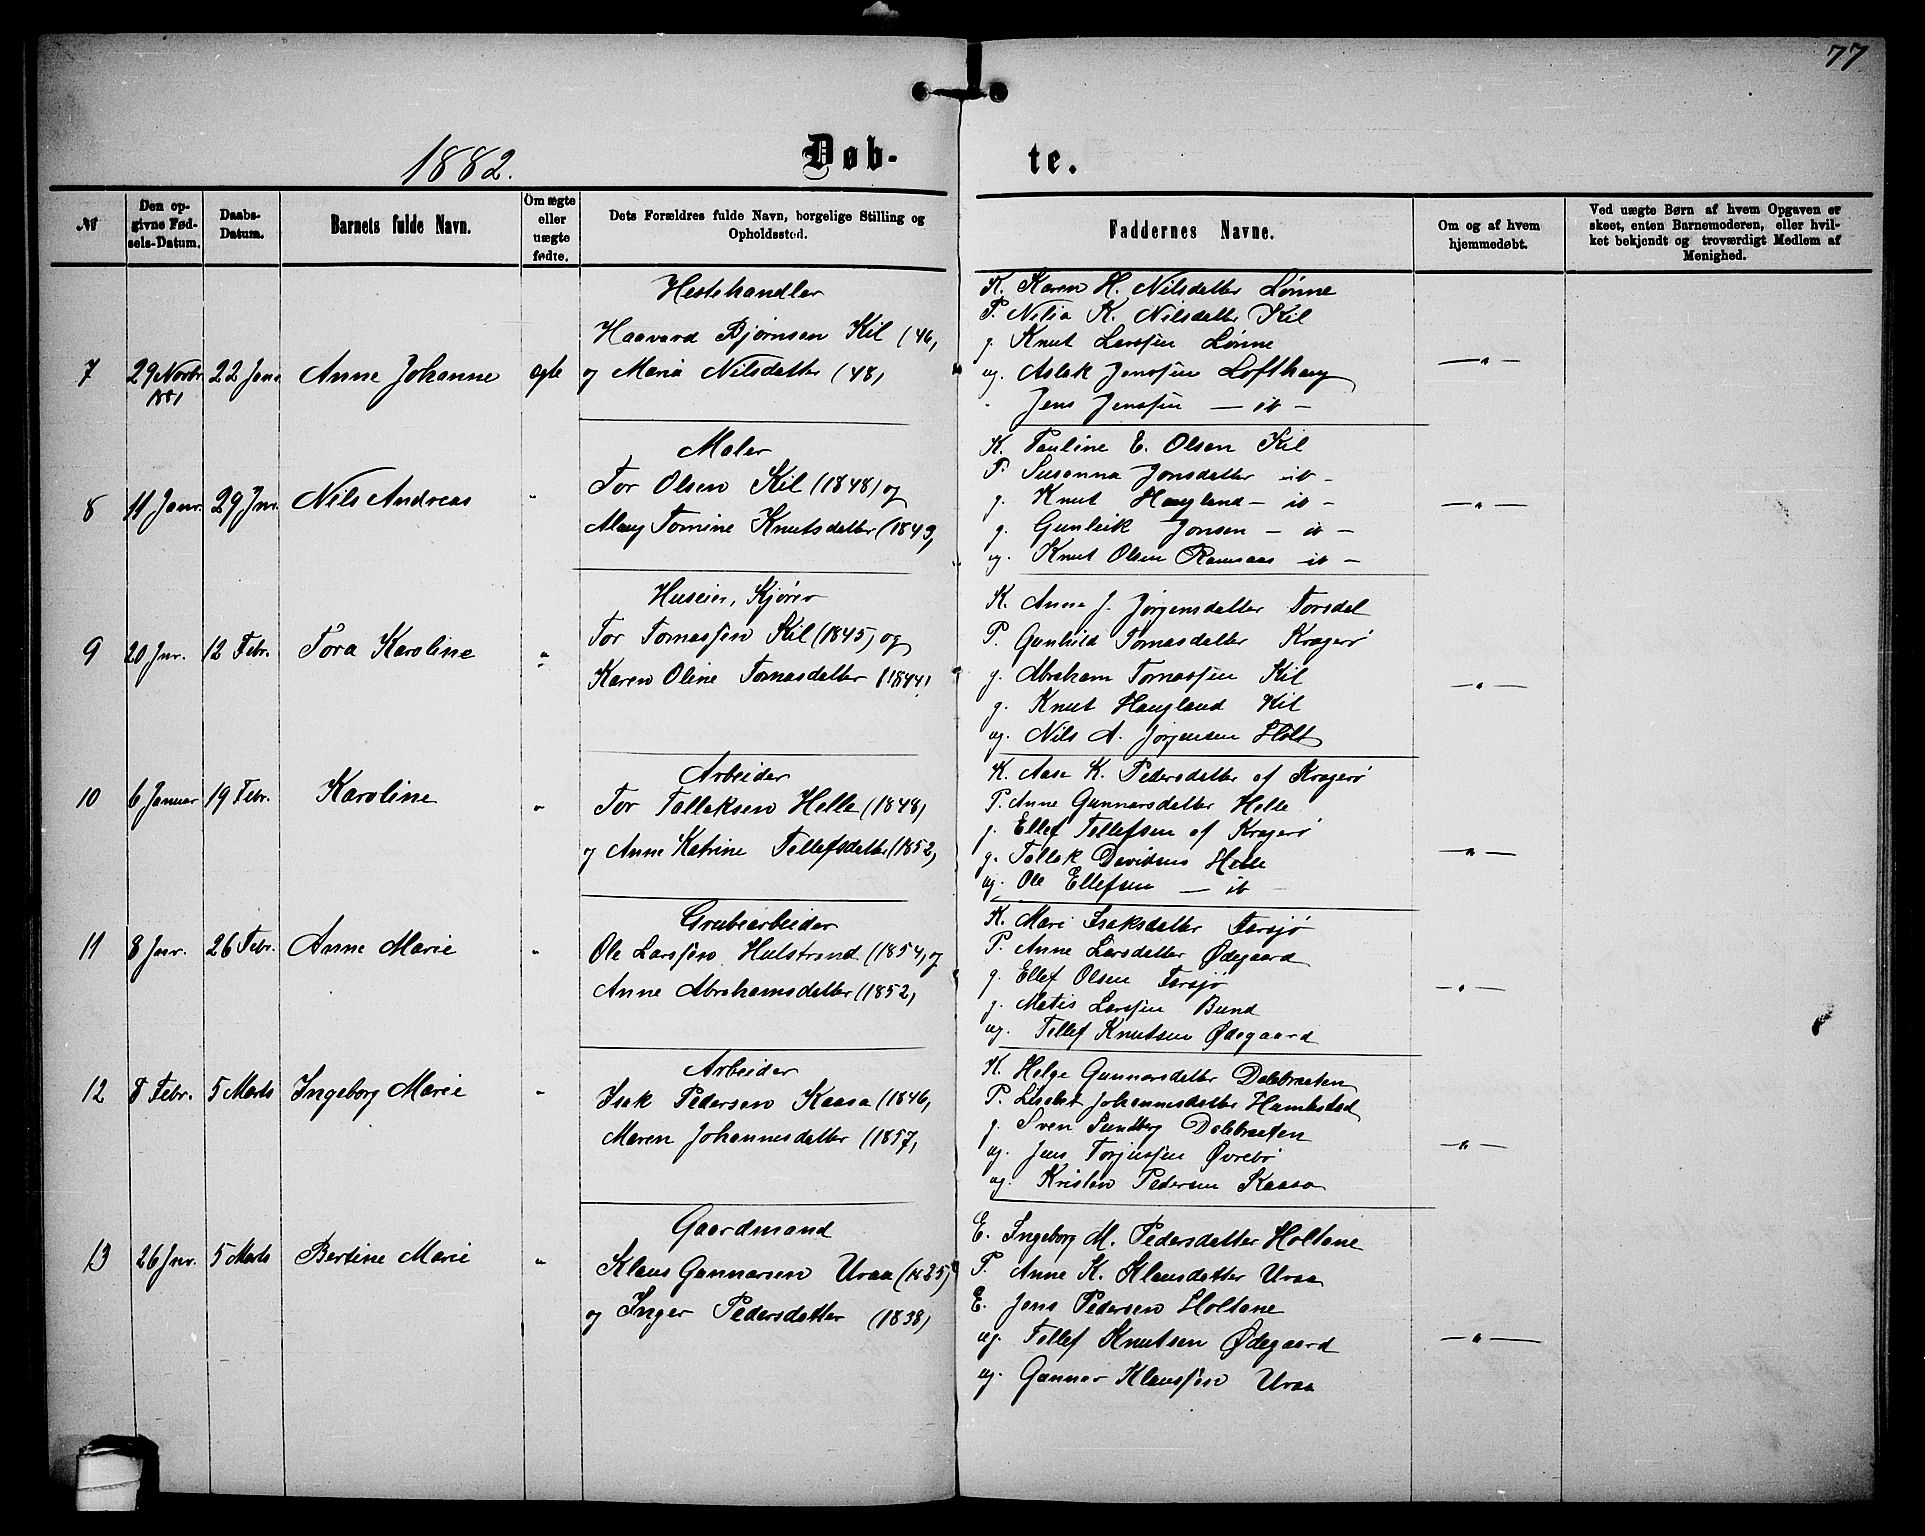 77
1882.
Døb-
te.
№
Den opgivne Fødsels-Datum.
Daabs-Datum.
Barnets fulde Navn.
Om ægte eller uægte fødte.
Dets Forældres fulde Navn, borgelige Stilling og Opholdssted.
Faddernes Navne.
Om og af hvem hjemmedøbt.
Ved uægte Børn af hvem Opgaven er skeet, enten Barnemoderen, eller hvilket bekjendt og troværdigt Medlem af Menighed.
7
29 Novbr 1881
22 Janr
Anne Johanne
ægte
Hestehandler
Haavard Bjørnsen Kil (46,
og Maria Nilsdatter (48,
K. Karen H. Nilsdatter Lønne
P. Nilia K. Nilsdatter Kil
g. Knut Larssen Lønne
ug. Aslak Jenssen Lofthaug
Jens Jenssen — ib —
— " —
8
11 Janr.
29 Jnr.
Nils Andreas
"
Maler
Tor Olsen Kil (1848) og
Tomine Knutsdatter (1849,
K. Pauline E. Olsen Kil
P. Susanna Jonsdatter ib -
g. Knut Haugland — ib —
g. Gunleik Jonsen — ib —
ug. Knut Olsen Ramsaas ib —
— " —
9
20 Jnr.
12 Febr.
Tora Karoline
"
Huseier, Kjører
Tor Tomassen Kil (1845) og
Karen Oline Tomasdatter (1844)
K. Anna J. Jørgensdatter Torsdal
P. Gunhild Tomasdatter Kragerø
g. Abraham Tomassen Kil
g. Knut Haugland Kil
ug. Nils A. Jørgensen Holt
— " —
10
6 Januar
19 Febr.
Karoline
"
Arbeider
Tor Tollaksen Helle (1848)
og Anne Katrine Tellefsdatter (1852,
K. Aase K. Pedersdatter af Kragerø
P. Anne Gunnarsdatter Helle
g. Ellef Tellefsen af Kragerø
g. Tollak Davidsen Helle
ug. Ole Ellefsen — ib
— " —
11
8 Jnr.
26 Febr.
Anne Marie
"
Grubearbeider
Ole Larssen Hulstrand (1854, og
Anne Abrahamsdatter (1852,
K. Mari Isaksdatter Farsjø
P. Anne Larsdatter Ødegaard
g. Ellef Olsen Farsjø
g. Matis Larssen Bund
ug. Tellef Knutsen Ødegaard
— " —
12
8 Febr.
5 Marts
Ingeborg Marie
"
Arbeider
Isak Pedersen Kaasa (1846,
Maren Johannesdatter (1857,
K. Helge Gunnarsdatter Dalebraaten
P. Lisabet Johannesdatter Humlestad
g. Sven Sundberg Dalebraaten
ug. Jens Torjussen Øvrebø
ug. Kristen Pedersen Kaasa
— " —
13
26 Jnr.
5 Marts
Bertine Marie
"
Gaardmand
Klaus Gunnarsen Uraa (1825)
og Inger Pedersdatter (1838)
E. Ingeborg M. Pedersdatter Holtane
P. Anne K. Klausdatter Uraa
E. Jens Pedersen Holtane
ug. Tellef Knutsen Ødegaard
ug. Gunnar Klaussen Uraa
— " —